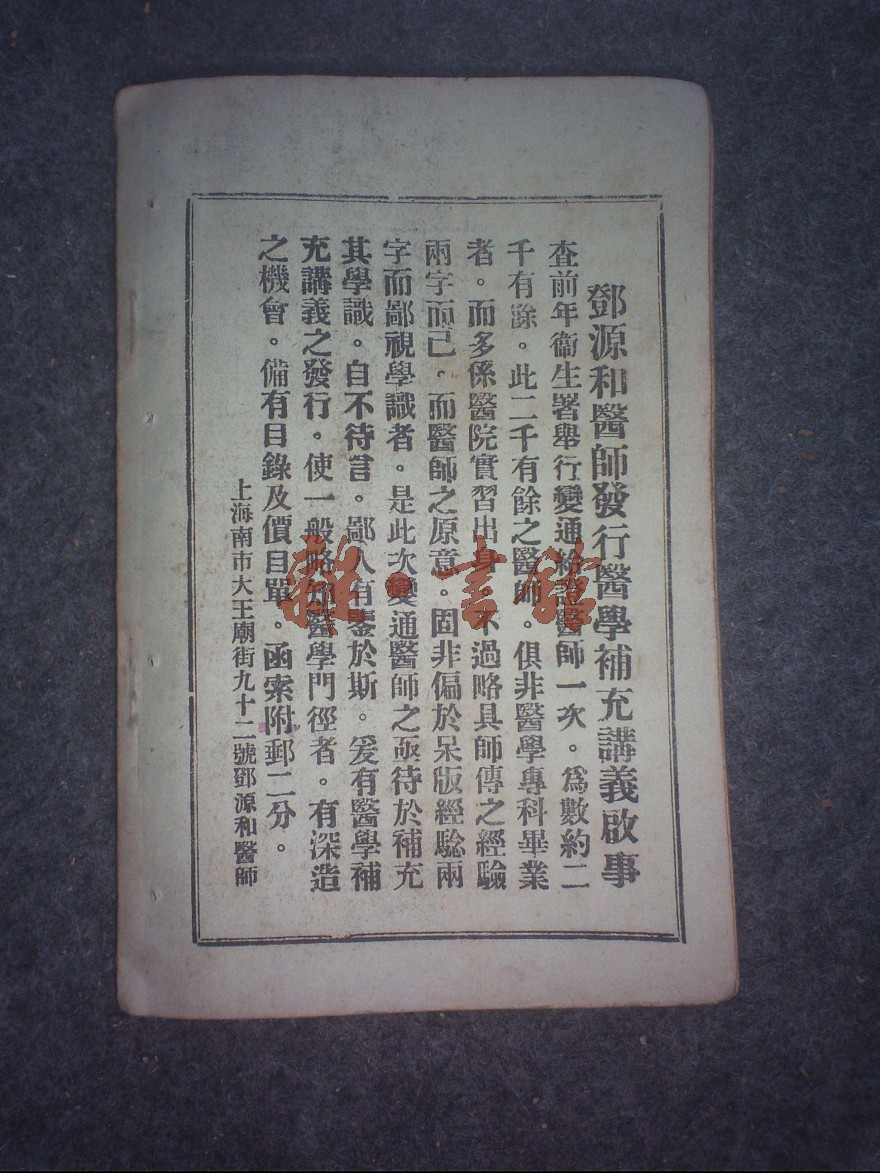 鄧源和醫師發行醫學補充講義啟事
查前年衞生署舉行變通給證醫師一次。爲數約二
千有餘。此二千有餘之醫師。俱非醫學專科畢業
者。而多係醫院實習出身。不過略具師傳之經驗
兩字而已。而醫師之原意。固非偏於呆版經騐兩
字而鄙視學識者。是此次變通醫師之亟待於補充
其學識。自不待言。鄙人有鑒於斯。爰有醫學補
充講義之發行。使一般略知醫學門徑者。有深造
之機會。備有目錄及價目單。函索附郵二分。
上海南市大王廟街九十二號鄧源和醫師
雜·書館